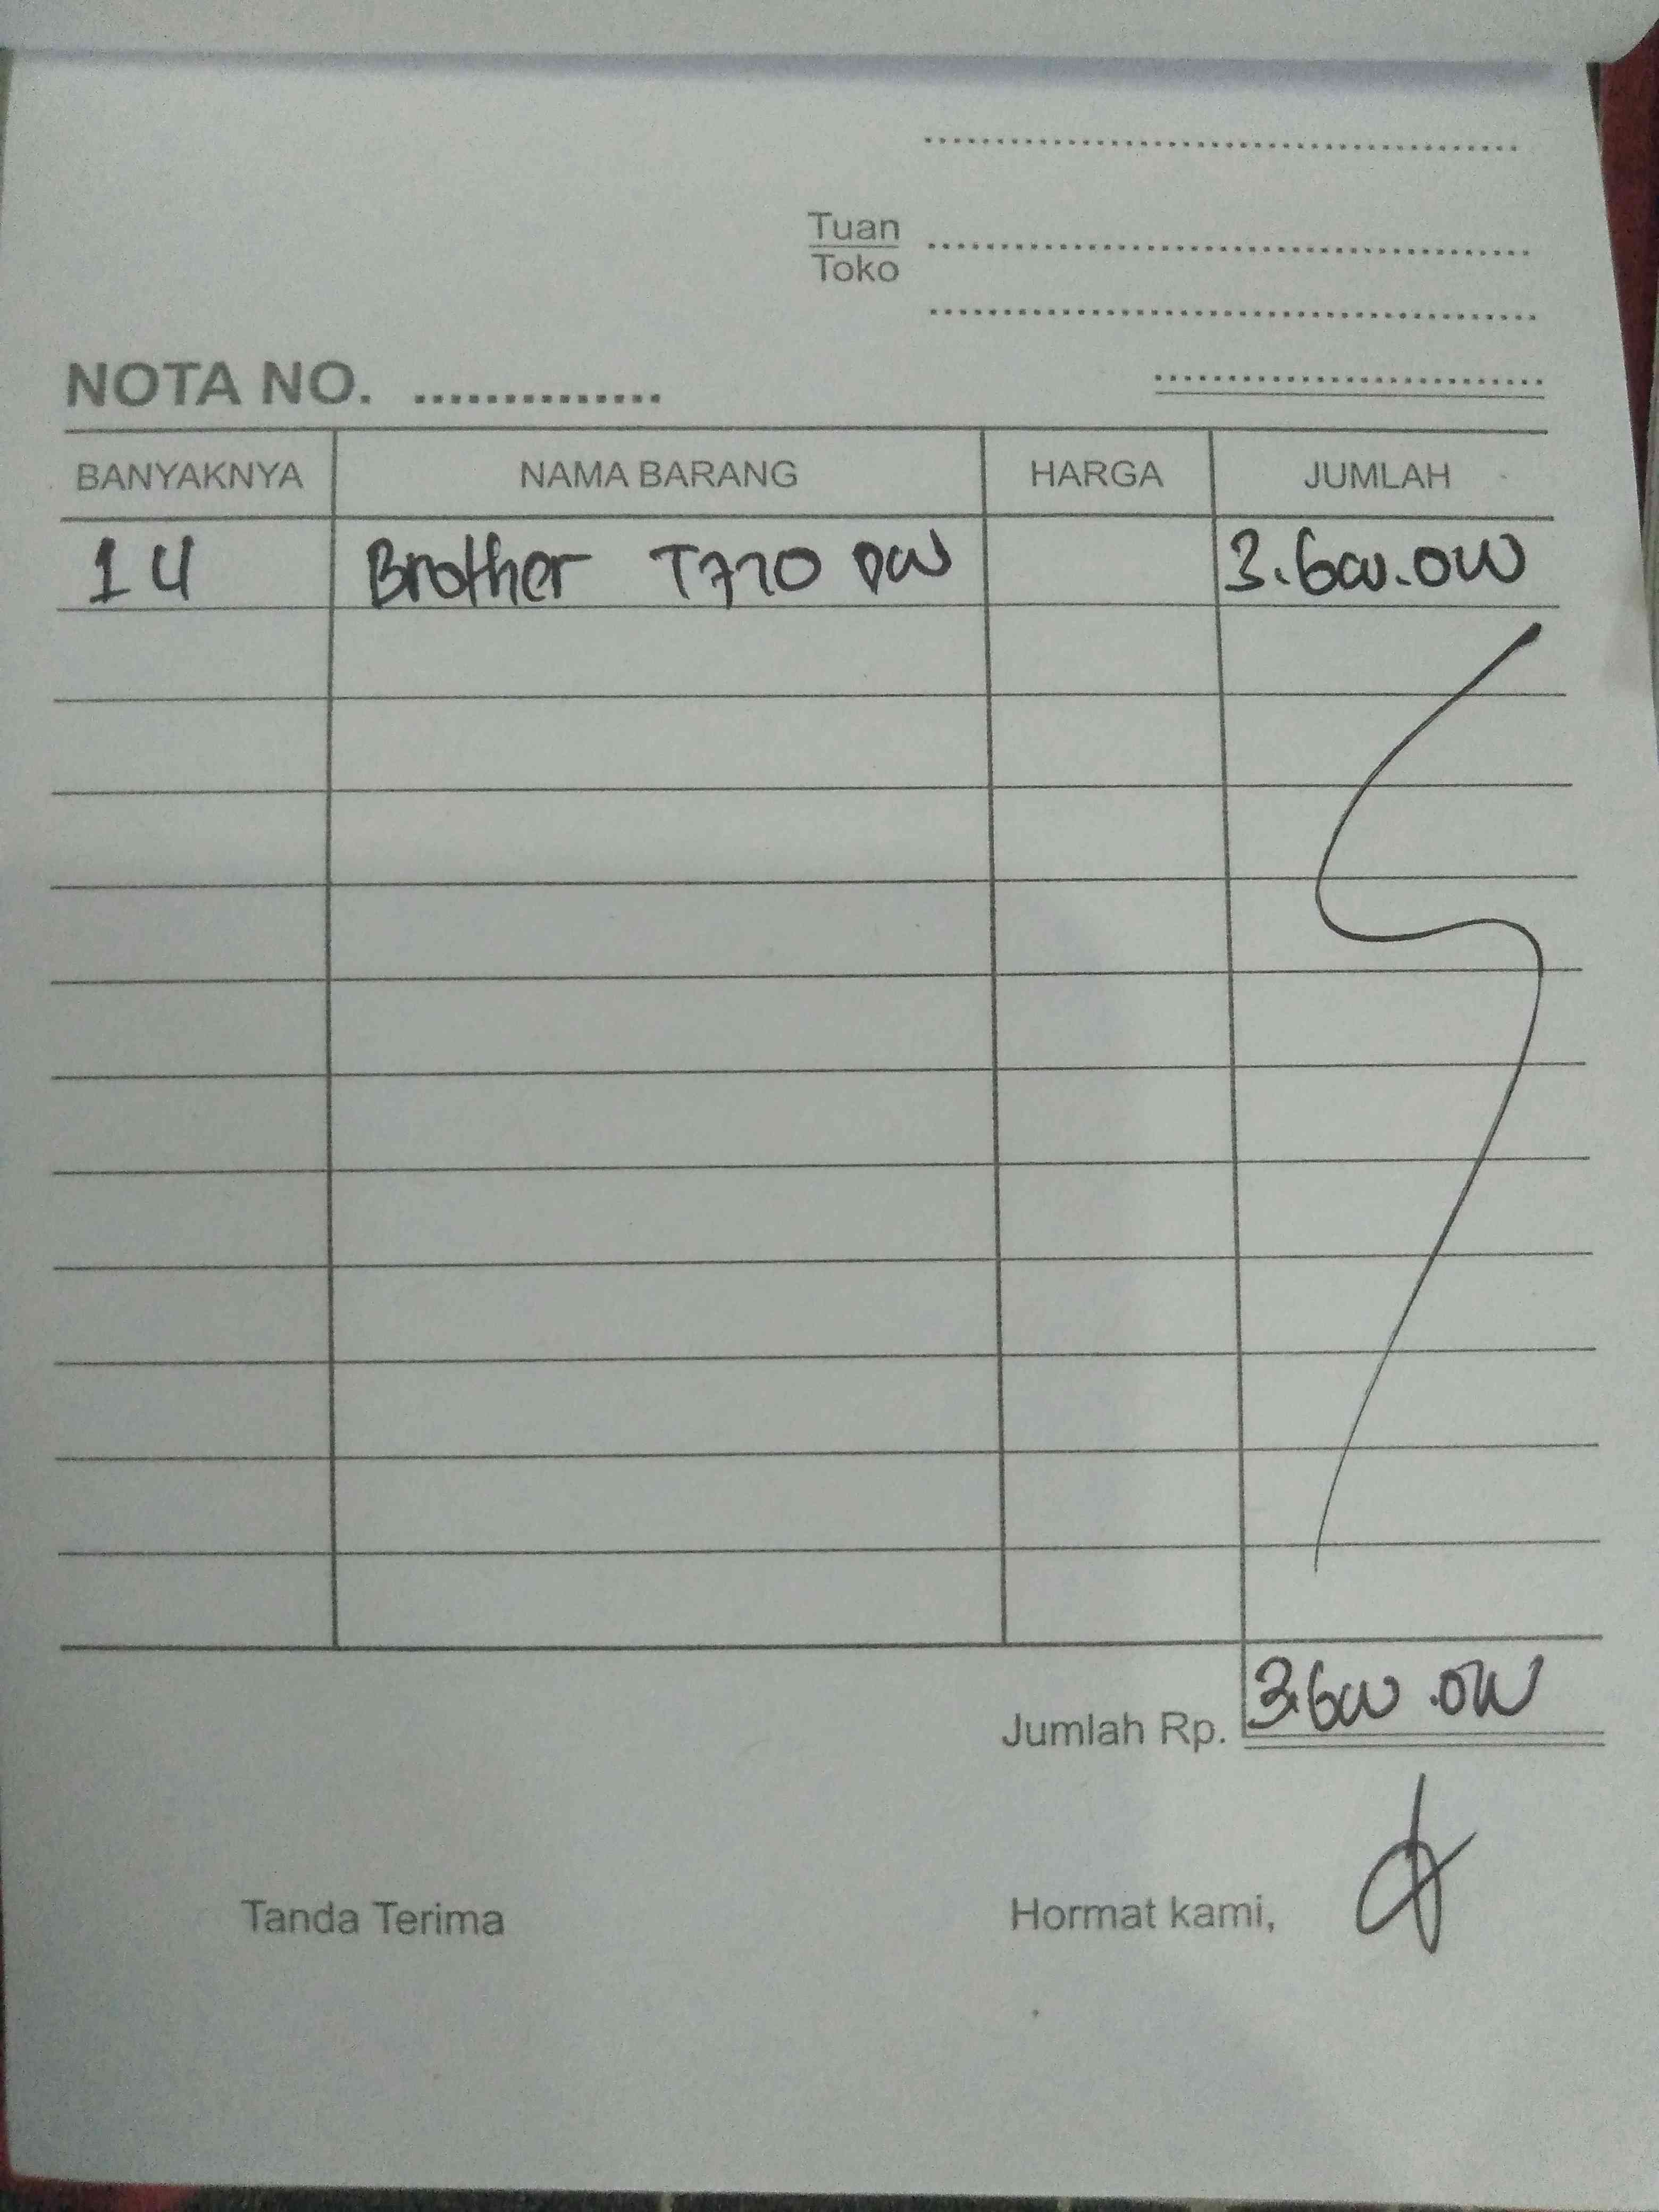 Tuan
Toko
NOTA NO. ..............
BANYAKNYA NAMA BARANG HARGA JUMLAH
1 U Brother T720 DW 3.600.000
Jumlah Rp. 3.600.000
Tanda Terima Hormat kami,